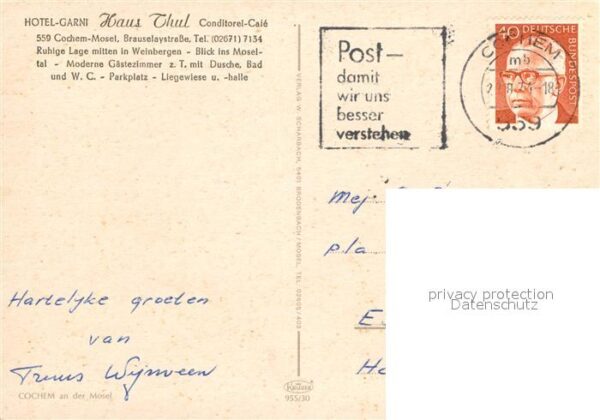 HOTEL-GARNI Haus Thul Conditorei-Café
559 Cochem-Mosel, Brauselaystraße, Tel. (02671) 7134
Ruhige Lage mitten in Weinbergen - Blick ins Mosel-
tal - Moderne Gästezimmer z. T. mit Dusche, Bad
und W. C. - Parkplatz - Liegewiese u. -halle
Post—
damit
wir uns
besser
verstehen
COCHEM
mb
559
40 DEUTSCHE
BUNDESPOST
VERLAG W. SCHARBACH, 5401 BRODENBACH / MOSEL, TEL. 02605/403
Mej
pla
privacy protection
Datenschutz
Hartelijke groeten
van
Truus Wijnveen
COCHEM an der Mosel
955/30